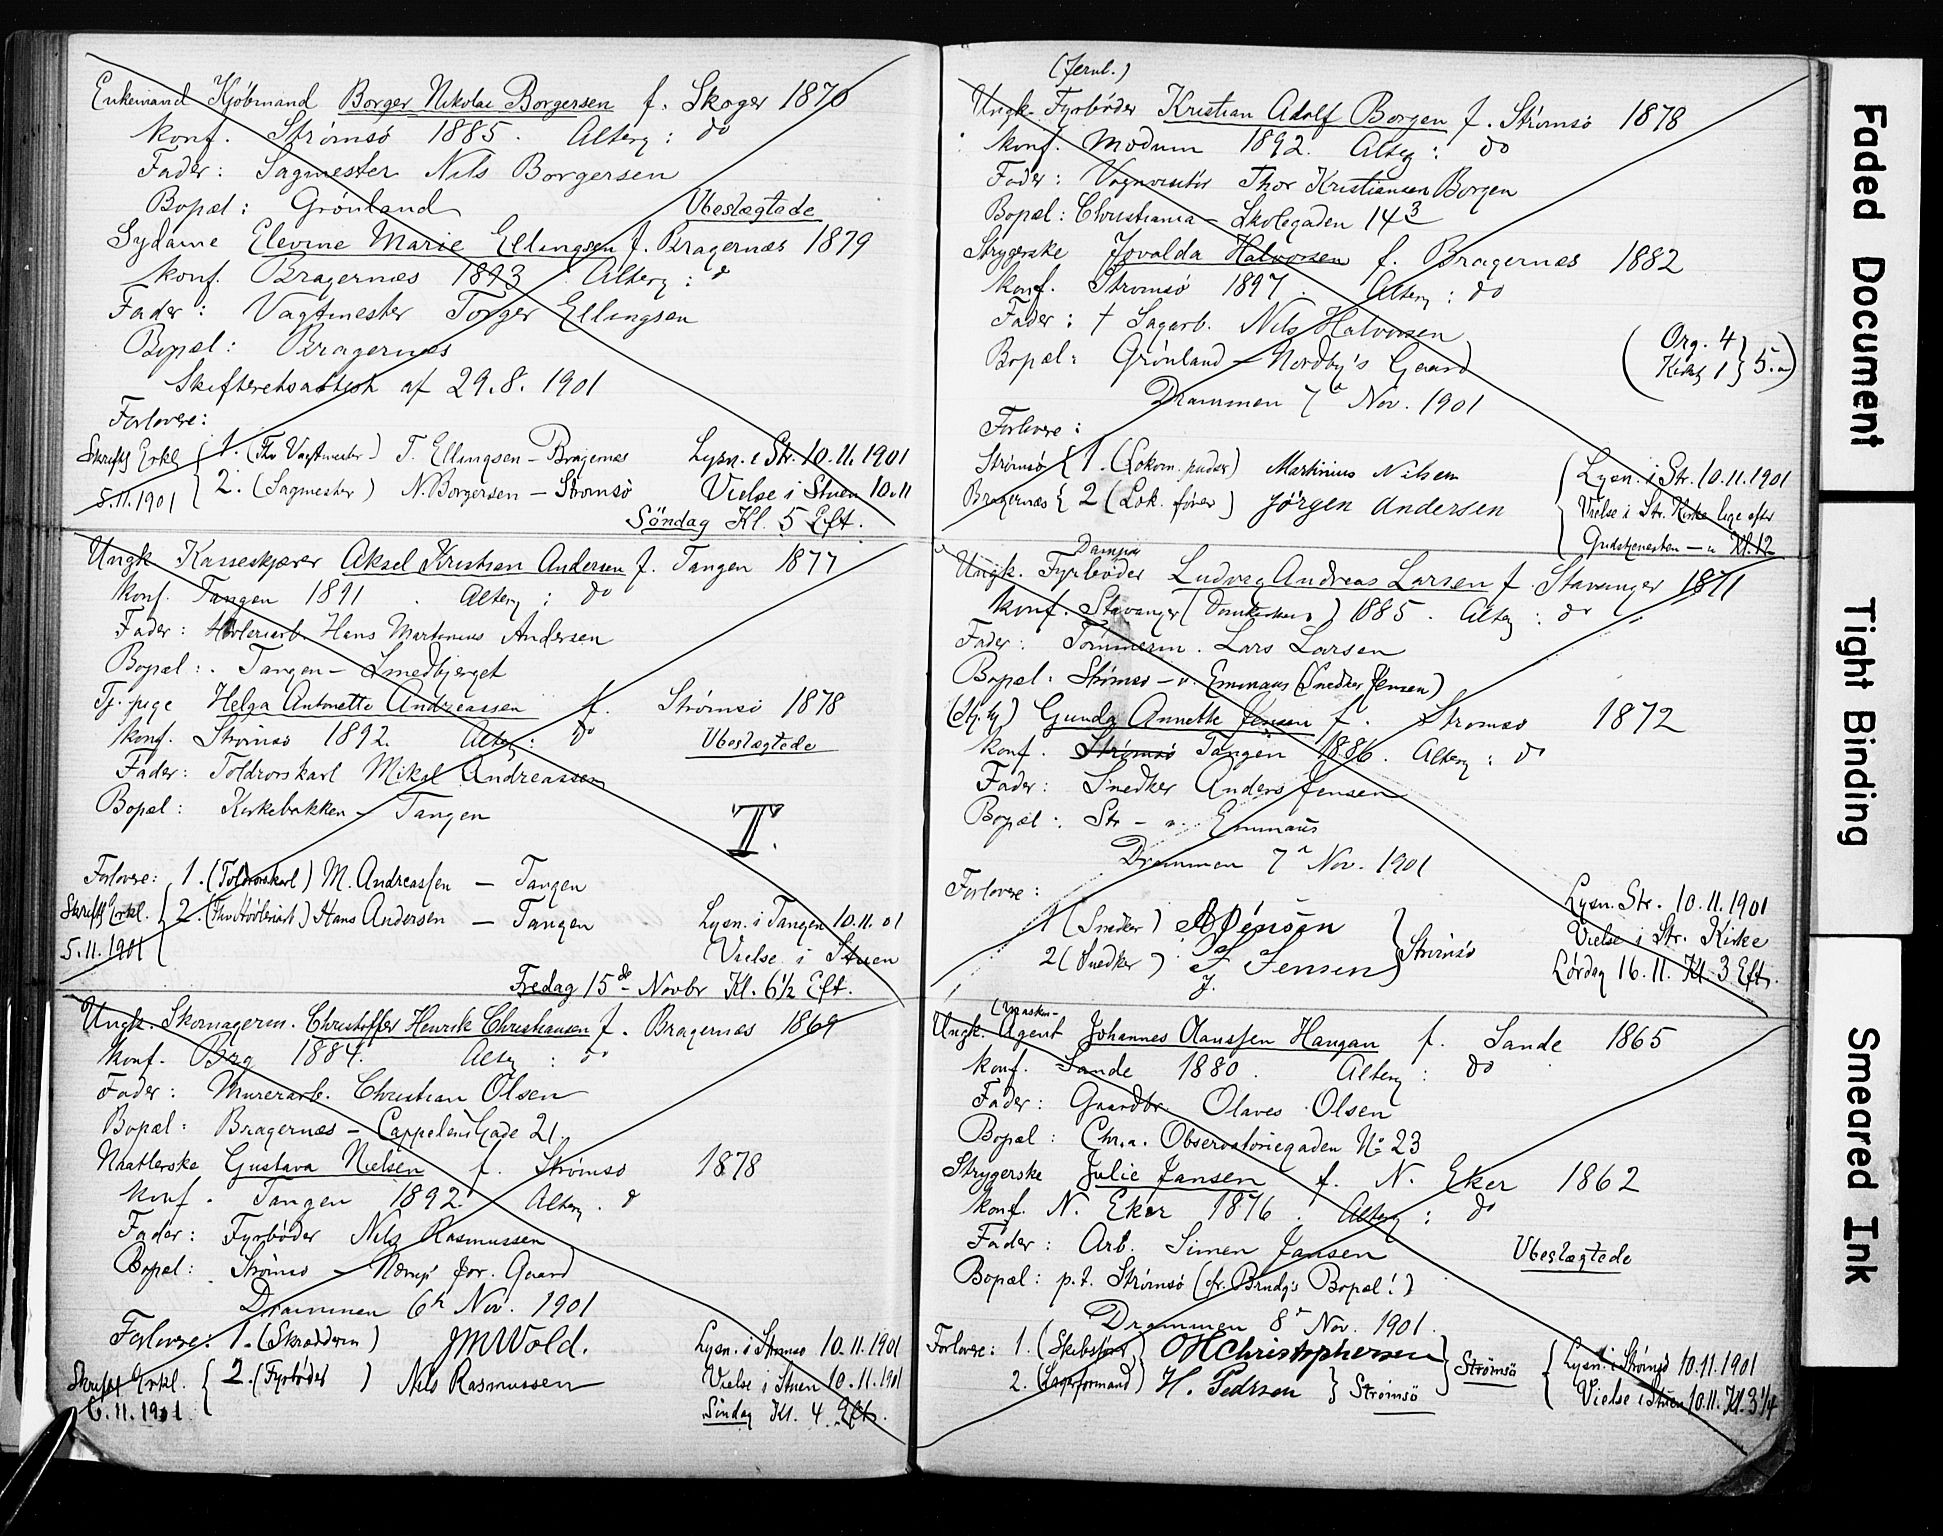 Enkemand Kjøbmand Borger Nikolai Borgersen f. Skoger 1870
Konf. Strømsø 1885. Alterg: do
Fader: Sagmester Nils Borgersen
Bopæl: Grønland Ubeslægtede
Sydame Elevine Marie Ellingsen f. Bragernæs 1879
Konf. Bragernæs 1893 Alterg: do
Fader: Vagtmester Torger Ellingsen
Bopæl: Bragernæs
Skifteretsattest af 29.8.1901
Forlovere:
Skriftl Erkl 5.11.1901
1. (Fhv Vagtmester) T. Ellingsen – Bragernæs Lysn. i Str. 10.11.1901
2. (Sagmester) N. Borgersen – Strømsø Vielse i Stuen 10.11
Søndag Kl. 5 Eft.
Ungk Kasseskjærer Aksel Kristian Andersen f. Tangen 1877
Konf. Tangen 1891. Alterg: do
Fader: Høvleriarb. Hans Martinius Andersen
Bopæl: Tangen – Smedbjerget
Tj. pige Helga Antonette Andreassen f. Strømsø 1878
Konf. Strømsø 1892. Alterg: do Ubeslægtede
Fader: Toldrorskarl Mikal Andreassen
Bopæl: Kirkebakken – Tangen
T.
Forlovere: 1. (Toldrorskarl) M. Andreassen – Tangen
Skriftl Erkl. 5.11.1901
2. (Fhv Høvleriarb) Hans Andersen – Tangen Lysn. i Tangen 10.11.01
Vielse i Stuen
Fredag 15de Novbr Kl. 6½ Eft.
Ungk. Skomagersv. Christoffer Henrik Christiansen f. Bragernæs 1869
Konf. Brg 1884. Alterg: do
Fader: Murerarb. Christian Olsen
Bopæl: Bragernæs – Cappelens Gade 21.
Naatlerske Gustava Nielsen f. Strømsø 1878
Konf. Tangen 1892. Alterg. do
Fader: Fyrbøder Nils Rasmussen
Bopæl: Strømsø – Gaard
Drammen 6n Nov. 1901
Forlovere: 1. (Skræddersv) JM Wold. Lysn. i Strømsø 10.11.1901
Skriftl Erkl. 6.11.1901
2. (Fyrbøder) Nils Rasmussen Vielse i Stuen 10.11.1901
Søndag Kl. 4 Eft.
(Jernb.)
Ungk. Fyrbøder Kristian Adolf Borgen f. Strømsø 1878
Konf. Modum 1892. Alterg: do
Fader: Vognvisitør Thor Kristiansen Borgen
Bopæl: Christiania – Skolegaden 14 3
Strygerske Jovalda Halvorsen f. Bragernæs 1882
Konf. Strømsø 1897. Alterg: do
Fader: † Sagarb. Nils Halvorsen
Bopæl: Grønland – Nordby's Gaard
(Org. 4 Kirketj 1 } 5.–)
Drammen 7n Nov. 1901
Forlovere:
Strømsø { 1. (Lokom. pudser) Martinius Nilsen Lysn. i Str. 10.11.1901
Bragernæs { 2 (Lok. fører) Jørgen Andersen Vielse i Str. Kirke lige efter
Gudstjenesten – Kl. 12
Dampsk
Ungk. Fyrbøder Ludvig Andreas Larsen f. Stavanger 1871
Konf. Stavanger (Domkirken) 1885. Alterg: do
Fader: Tømmerm. Lars Larsen
Bopæl: Strømsø – v. Emmaus (Snedker Jensen)
(Stp. ty) Gunda Annette Jensen f. Strømsø 1872
Konf. Strømsø Tangen 1886. Alterg: do
Fader: Snedker Anders Jensen
Bopæl: Str – v. Emmaus
Drammen 7n Nov. 1901
Forlovere:
1 (Snedker) A Jensen
2 (Snedker) J Jensen
J.
Strømsø
Lysn. Str. 10.11.1901
Vielse i Str. Kirke
Lørdag 16.11. Kl 3 Eft.
(Maskin-
Ungk. Agent Johannes Olaussen Haugan f. Sande 1865
Konf. Sande 1880. Alterg: do
Fader: Gaardbr. Olaves Olsen
Bopæl: Chr.a. Observatoriegaden No 23
Strygerske Julie Jansen f. N. Eker 1862
Konf. N. Eker 1876. Alterg: do
Fader: Arb. Simen Jansen
Ubeslægtede
Bopæl: p.t. Strømsø (fr. Brudg's Bopæl!)
Drammen 8n Nov. 1901.
Forlovere: 1. (Skibsfører) OH Christophersen } Strømsø Lysn. i Strømsø 10.11.1901
2. (Lagerformand) H. Pedersen } Strømsø Vielse i Stuen 10.11. Kl. 3¼
Faded Document
Tight Binding
Smeared Ink